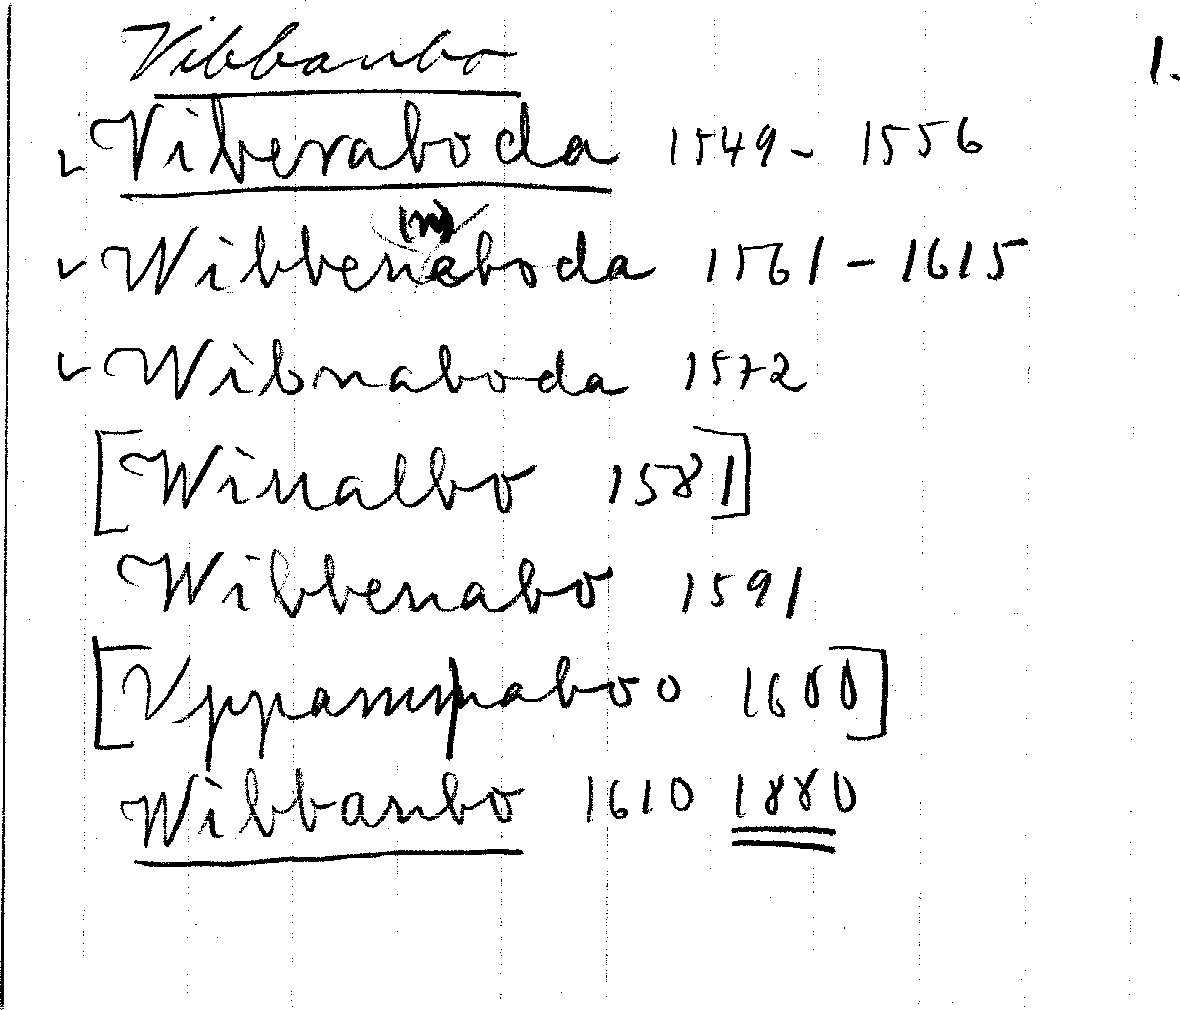 Vibbanbo 1.
Viberaboda 1549 - 1556
(n)
Wibbenaboda 1561 - 1615
Wibnaboda 1572
[Winalbo 1581]
Wibbenabo 1591
[Vppammaboo 1600]
Wibbanbo 1610 1880